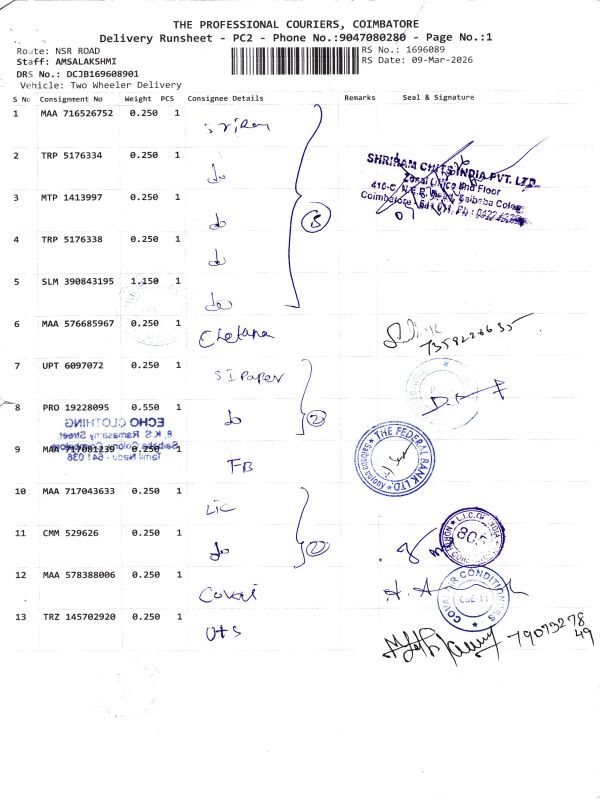 THE PROFESSIONAL COURIERS, COIMBATORE
Delivery Runsheet - PC2 - Phone No.:9047080280 - Page No.:1
Route: NSR ROAD
RS No.: 1696089
Staff: AMSALAKSHMI
RS Date: 09-Mar-2026
DRS No.: DCJB169608901
Vehicle: Two Wheeler Delivery
S No Consignment No Weight PCS Consignee Details Remarks Seal & Signature
1 MAA 716526752 0.250 1 Sriram
2 TRP 5176334 0.250 1 do
SHRIRAM CHITS INDIA PVT. LTD.
3 MTP 1413997 0.250 1 do
5
4 TRP 5176338 0.250 1 do
5 SLM 390843195 1.150 1 do
6 MAA 576685967 0.250 1 Chetana
7359226635
7 UPT 6097072 0.250 1 SI Paper
8 PRO 19228095 0.550 1 do
2
ECHO CLOTHING
8, K S Ramasamy Street,
Saibaba Colony, Coimbatore
Tamil Nadu - 641 038
9 MAA 717081239 0.250 1 FB
THE FEDERAL BANK LTD
10 MAA 717043633 0.250 1 LIC
11 CMM 529626 0.250 1 do
2
12 MAA 578388006 0.250 1 Covai
13 TRZ 145702920 0.250 1 UTS